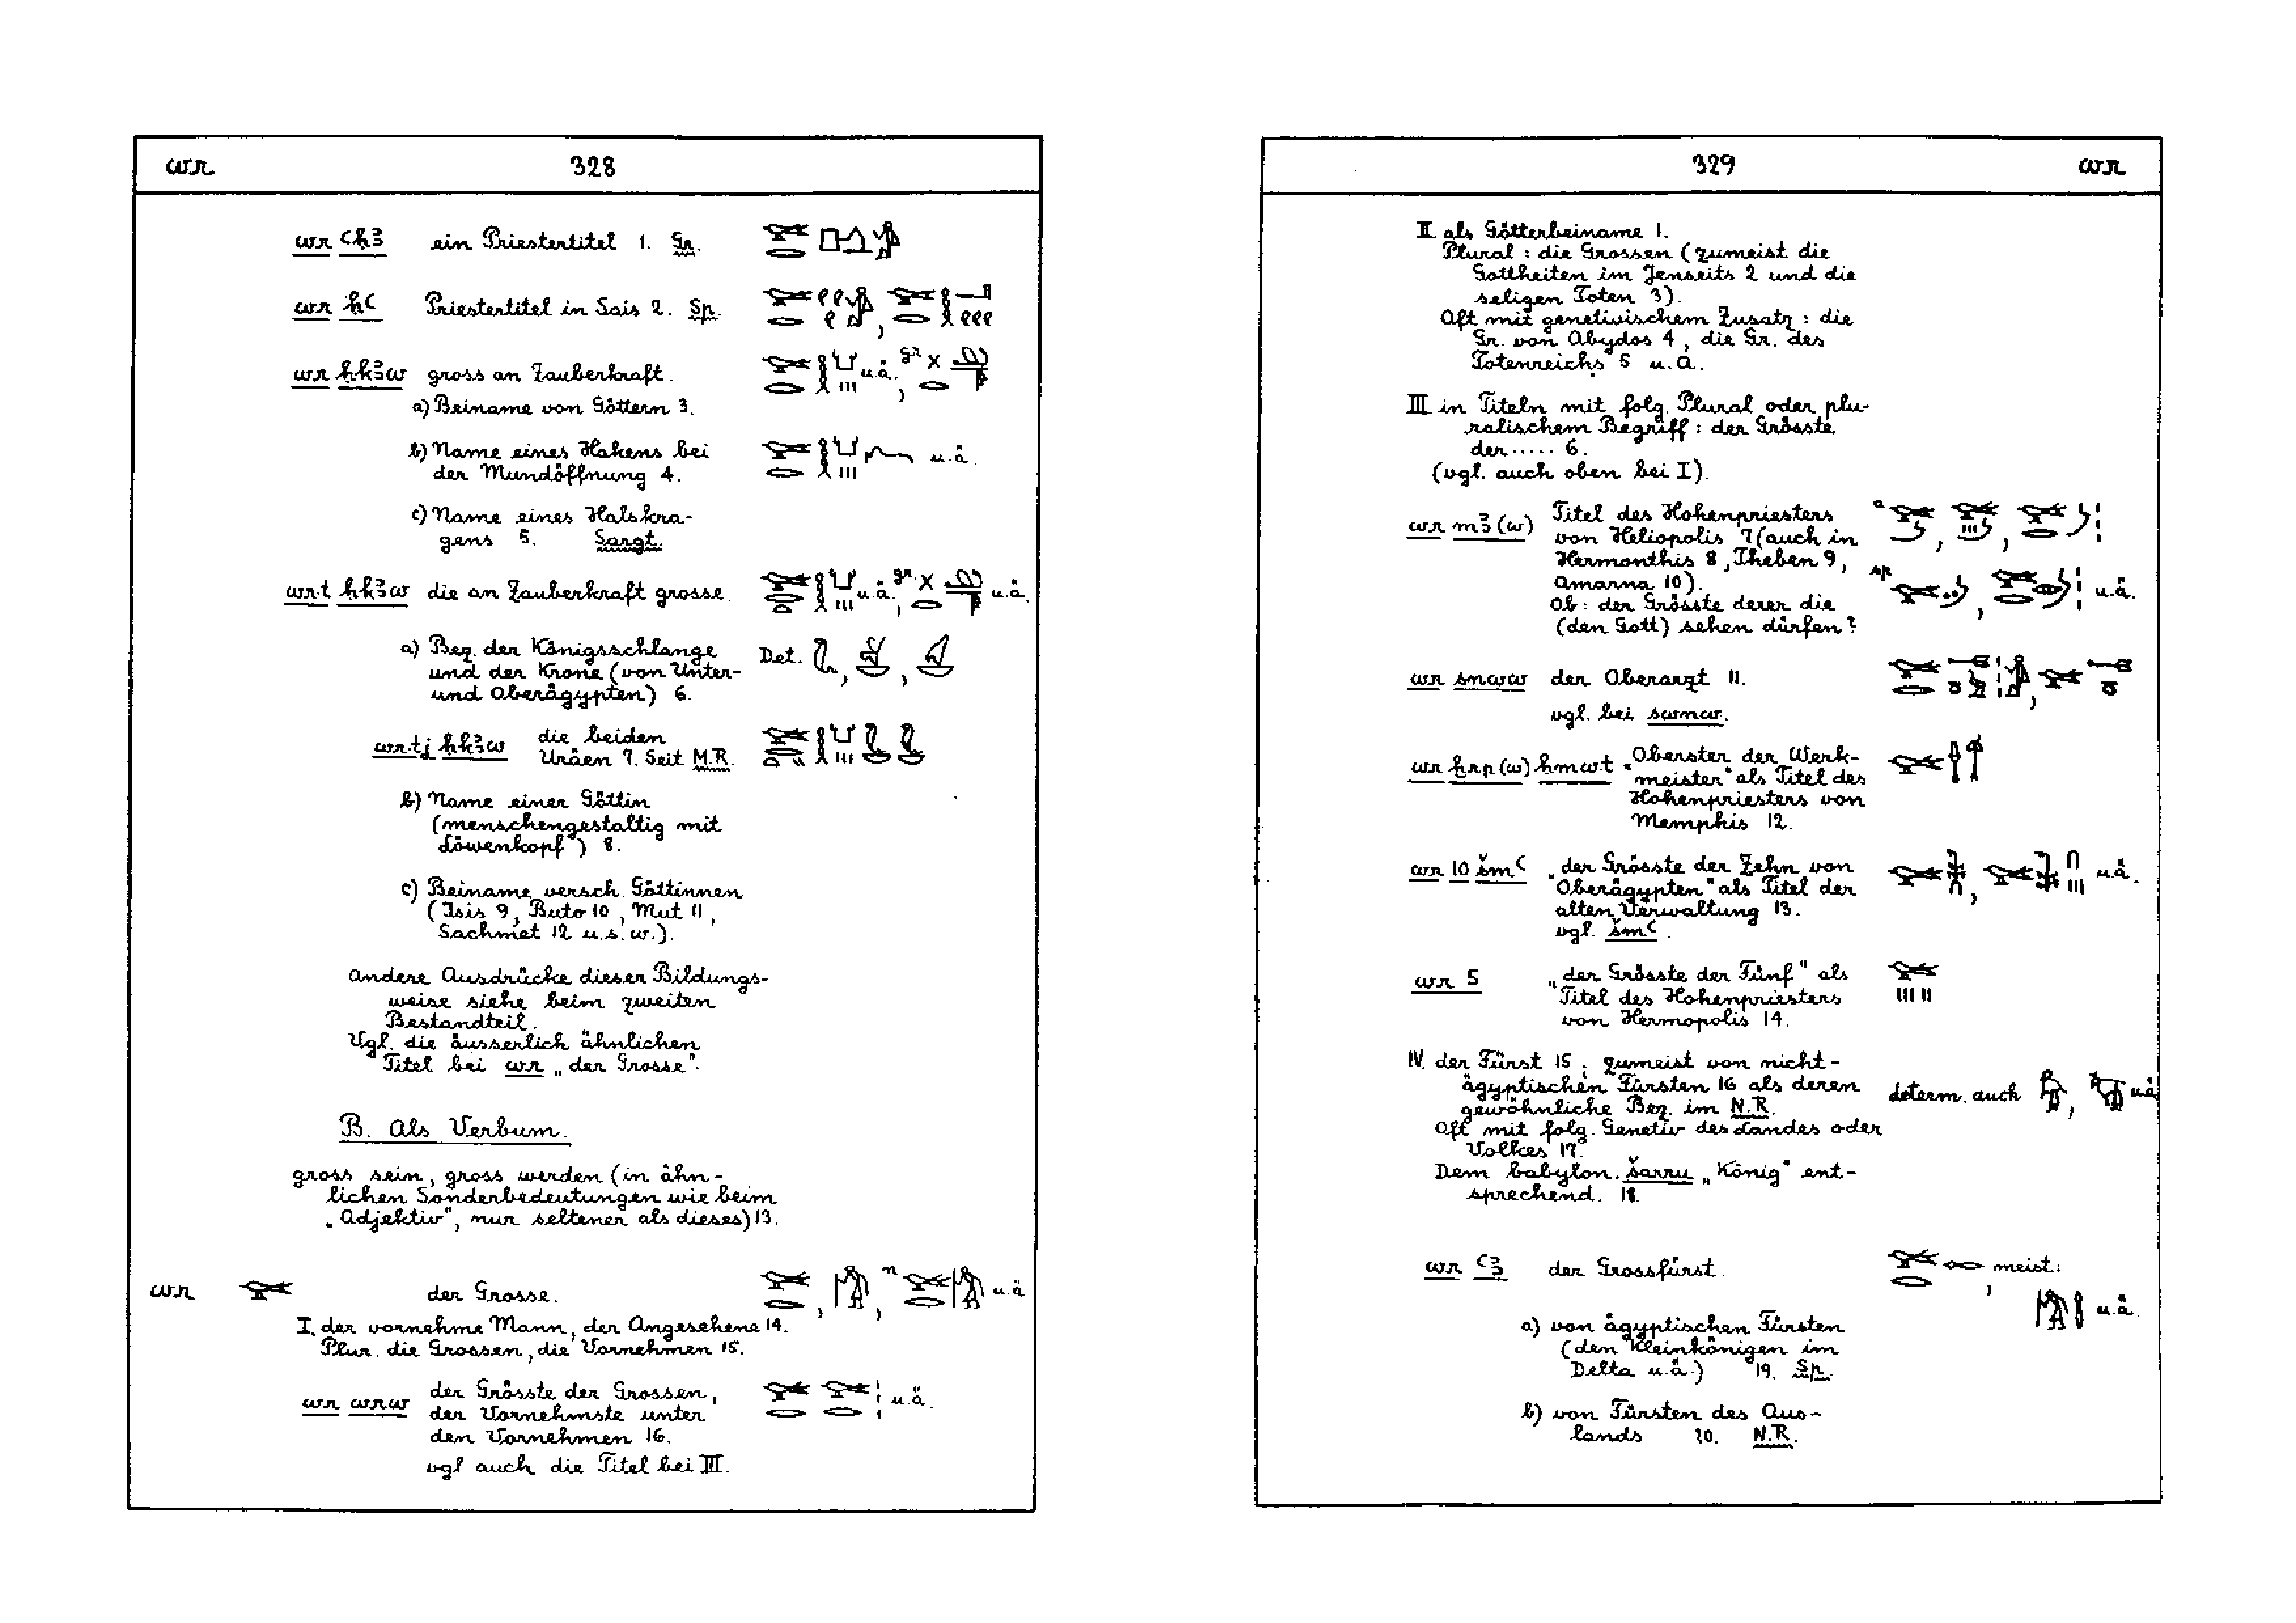 wr 328
wr ꜥḥꜣ ein Priestertitel 1. Gr.
wr ḥꜥ Priestertitel in Sais 2. Sp.
wr ḥkꜣw gross an Zauberkraft. u.ä., gr.
a) Beiname von Göttern 3.
b) Name eines Hakens bei u.ä.
der Mundöffnung 4.
c) Name eines Halskra-
gens 5. Sargt.
wr.t ḥkꜣw die an Zauberkraft grosse. u.ä., gr. u.ä.
a) Bez. der Königsschlange Det.
und der Krone (von Unter-
und Oberägypten) 6.
wr.tj ḥkꜣw die beiden
Uräen 7. Seit M.R.
b) Name einer Göttin
(menschengestaltig mit
Löwenkopf) 8.
c) Beiname versch. Göttinnen
(Isis 9, Buto 10, Mut 11,
Sachmet 12 u.s.w.).
Andere Ausdrücke dieser Bildungs-
weise siehe beim zweiten
Bestandteil.
Vgl. die äusserlich ähnlichen
Titel bei wr „der Grosse“.
B. Als Verbum.
gross sein, gross werden (in ähn-
lichen Sonderbedeutungen wie beim
„Adjektiv“, nur seltener als dieses) 13.
wr der Grosse. , , n u.ä
I. der vornehme Mann, der Angesehene 14.
Plur. die Grossen, die Vornehmen 15.
wr wrw der Grösste der Grossen, u.ä.
der Vornehmste unter
den Vornehmen 16.
vgl auch die Titel bei III.
329 wr
II als Götterbeiname 1.
Plural : die Grossen (zumeist die
Gottheiten im Jenseits 2 und die
seligen Toten 3).
Oft mit genetivischem Zusatz : die
Gr. von Abydos 4, die Gr. des
Totenreichs 5 u.a.
III in Titeln mit folg. Plural oder plu-
ralischem Begriff : der Grösste
der ..... 6.
(vgl. auch oben bei I).
wr mꜣ(w) Titel des Hohenpriesters a
von Heliopolis 7 (auch in
Hermonthis 8, Theben 9,
Amarna 10). sp u.ä.
Ob : der Grösste derer die
(den Gott) sehen dürfen?
wr śnww der Oberarzt 11.
vgl. bei swnw.
wr ḫrp(w) ḥmwt „Oberster der Werk-
meister“ als Titel des
Hohenpriesters von
Memphis 12.
wr 10 šmꜥ „der Grösste der Zehn von u.ä.
Oberägypten“ als Titel der
alten Verwaltung 13.
vgl. šmꜥ.
wr 5 „der Grösste der Fünf“ als
Titel des Hohenpriesters
von Hermopolis 14.
IV. der Fürst 15 ; zumeist von nicht-
ägyptischen Fürsten 16 als deren determ. auch , u.ä
gewöhnliche Bez. im N.R.
Oft mit folg. Genetiv des Landes oder
Volkes 17.
Dem babylon. šarru „König“ ent-
sprechend. 18.
wr ꜥꜣ der Grossfürst. , meist:
u.ä.
a) von ägyptischen Fürsten
(den Kleinkönigen im
Delta u.ä.) 19. Sp.
b) von Fürsten des Aus-
lands 20. N.R.